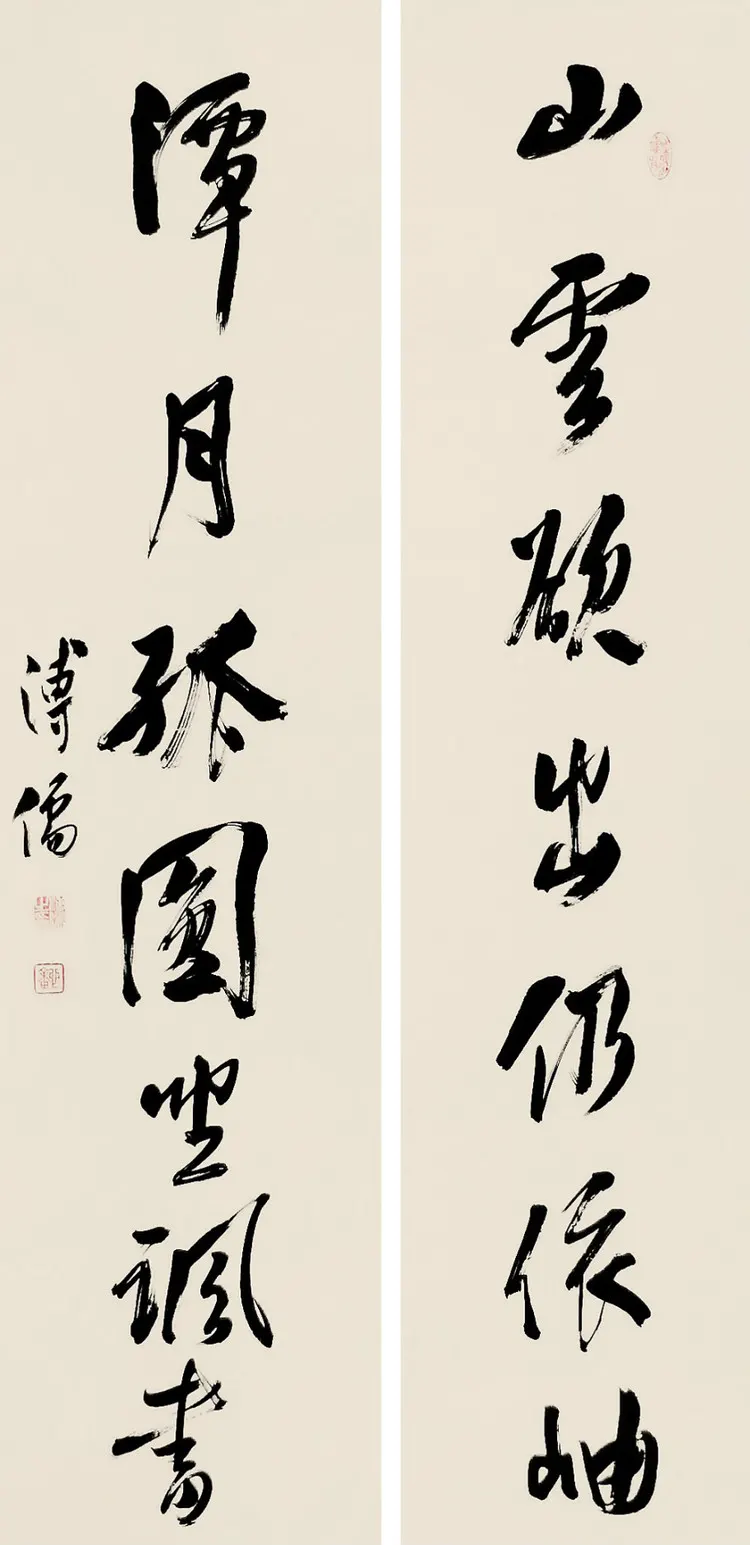 山雲欲出仍依岫
潭月孤圓坐諷書
溥儒